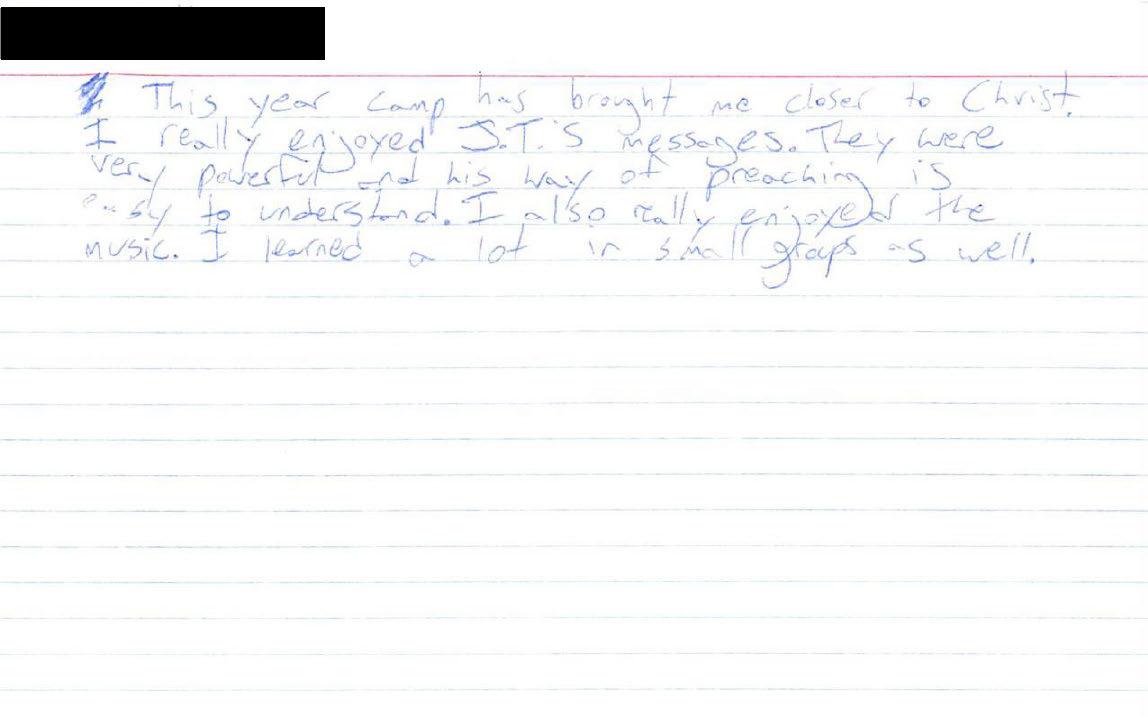 This year camp has brought me closer to Christ.
I really enjoyed J.T.'s messages. They were
very powerful and his way of preaching is
easy to understand. I also really enjoyed the
music. I learned a lot in small groups as well.